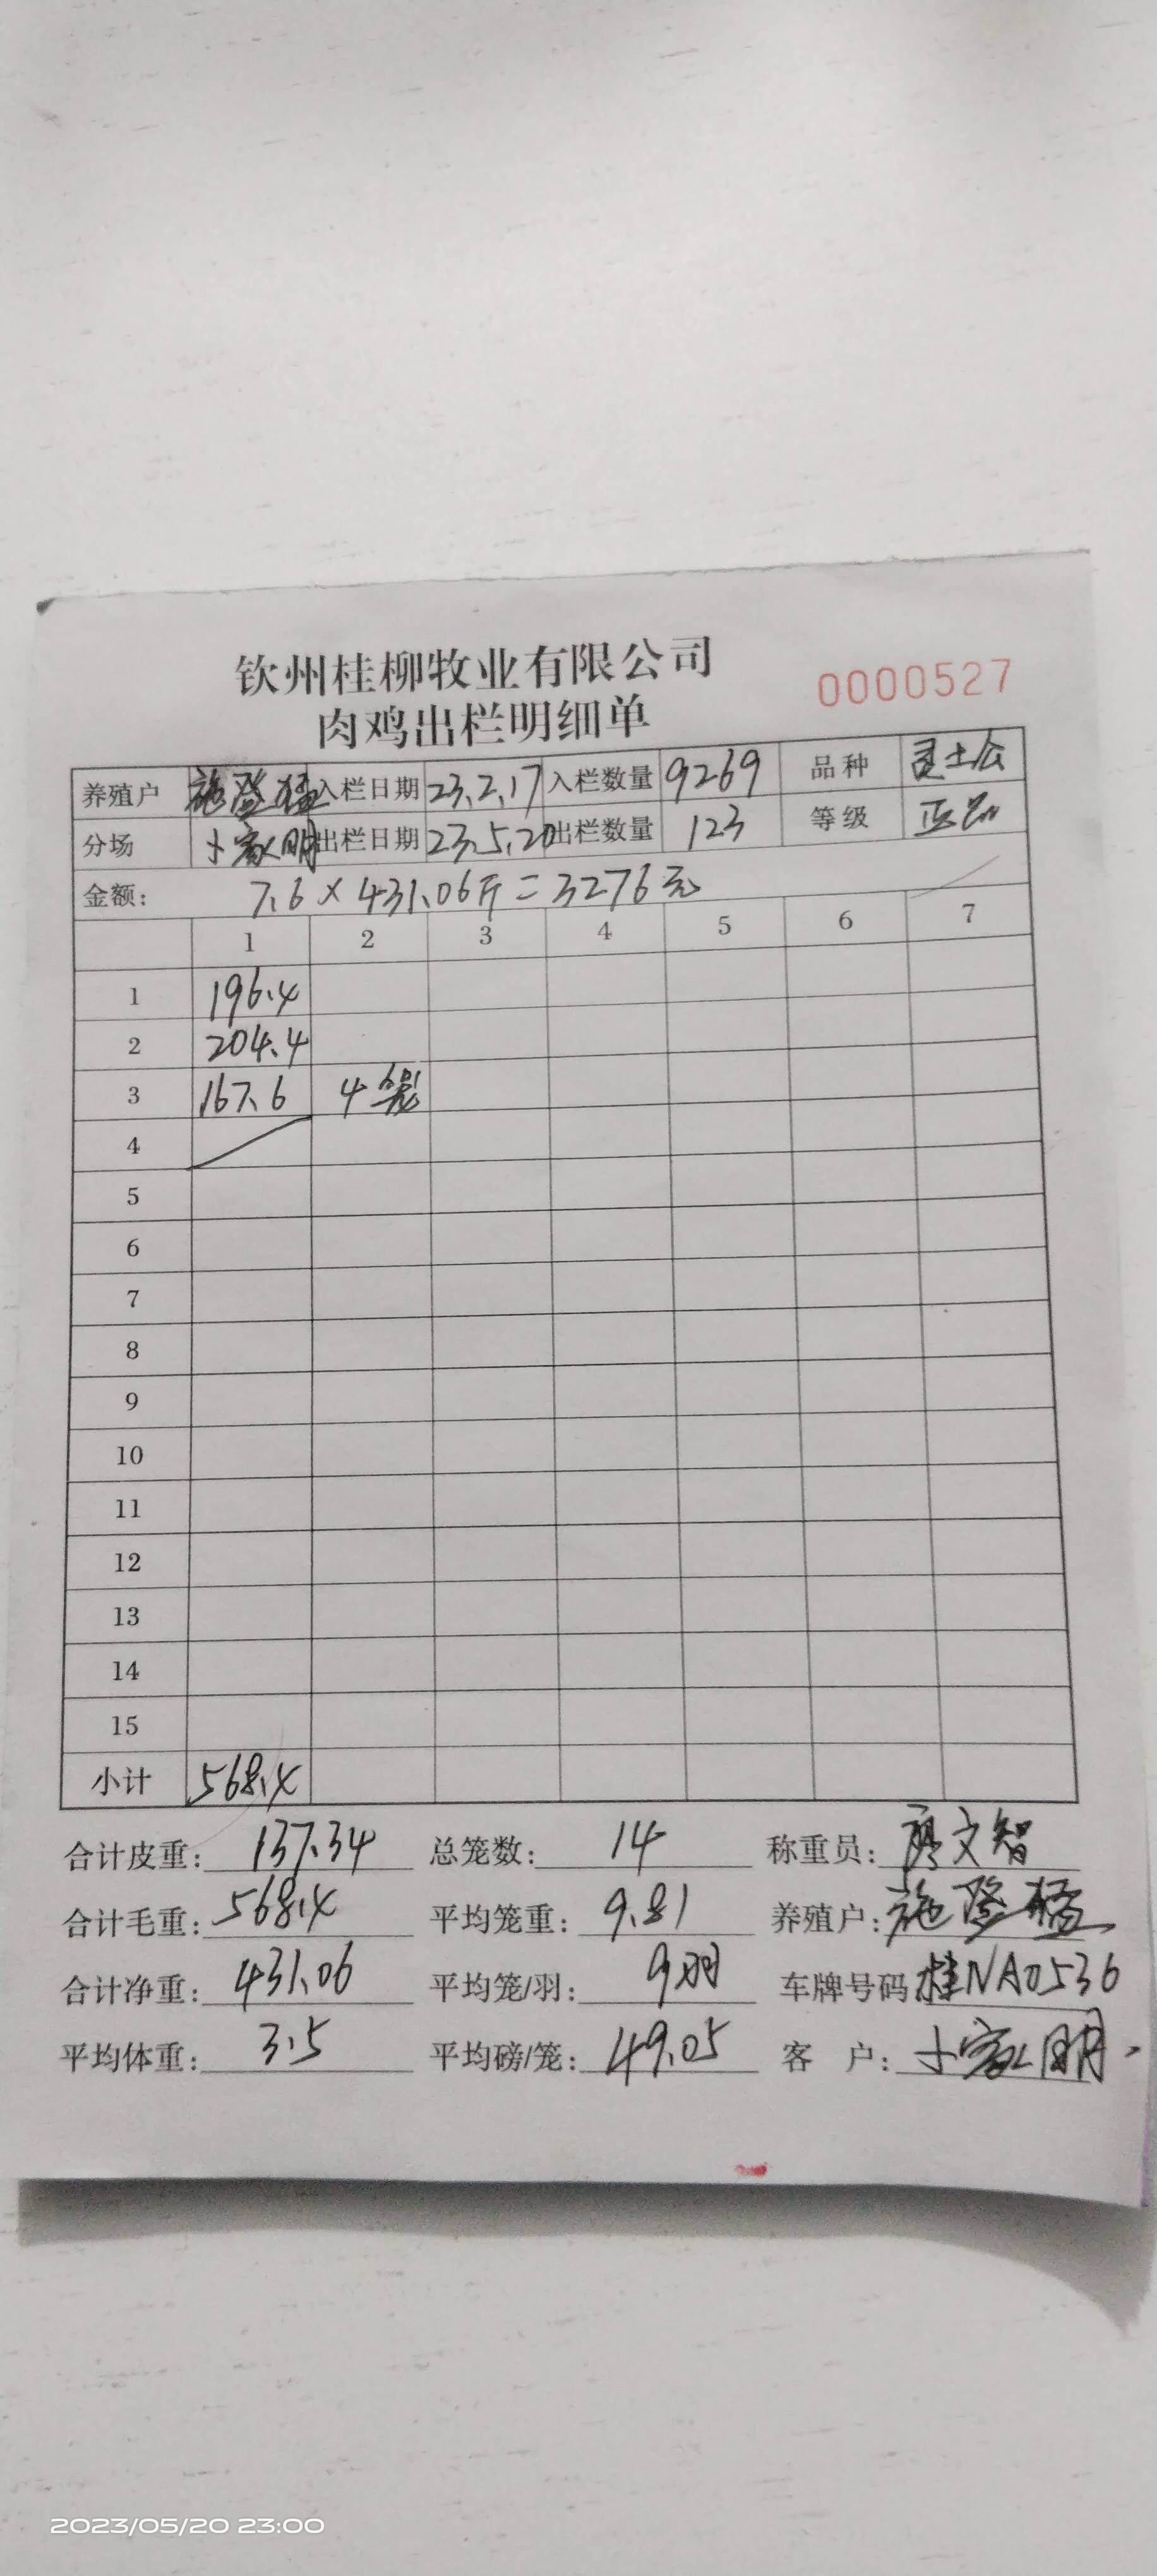 钦州桂柳牧业有限公司
0000527
肉鸡出栏明细单
养殖户 施隆猛 入栏日期 23.2.17 入栏数量 9269 品种 灵土公
分场 卜家明 出栏日期 23.5.20 出栏数量 123 等级 正品
金额: 7.6×431.06斤=3276元
1 2 3 4 5 6 7
1 196.4
2 204.4
3 167.6 4笼
4
5
6
7
8
9
10
11
12
13
14
15
小计 568.4
合计皮重: 137.34 总笼数: 14 称重员: 廖文智
合计毛重: 568.4 平均笼重: 9.81 养殖户: 施隆猛
合计净重: 431.06 平均笼/羽: 9羽 车牌号码 桂NA0536
平均体重: 3.5 平均磅/笼: 49.05 客户: 卜家明
2023/05/20 23:00